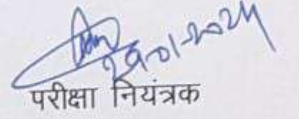 29-01-2024
परीक्षा नियंत्रक